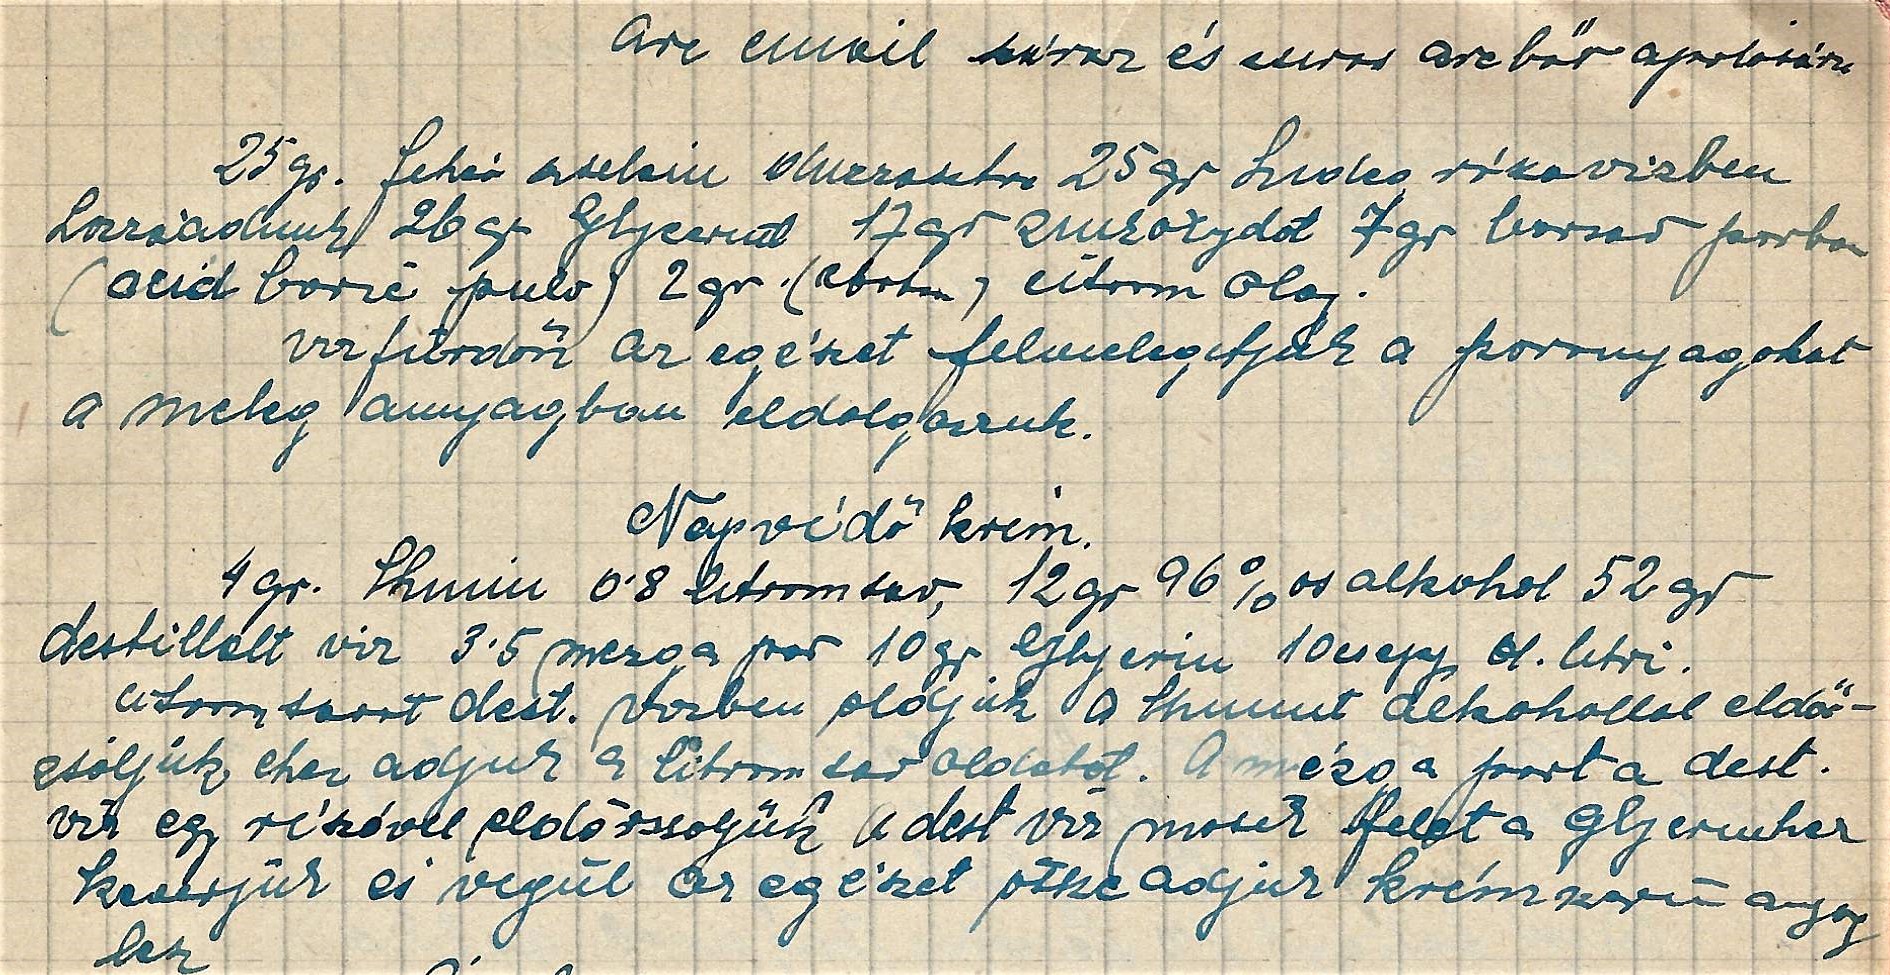 Arc email száraz és zsiros arcbőr ápolására
25 gr. fehér zselatin 25 gr rózsavizben
hozzáadunk 26 gr Glycerint 17 gr zinkoxydot 7 gr borsav porban
(acid boric pulv) 2 gr. citrom olaj.
viz fürdőn az egészet felmelegitjük a poranyagokat
a meleg anyagban eldolgozzuk.
Napvédő krém.
4 gr. 0.8 citromsav, 12 gr 96% os alkohol 52 gr
destillált viz 3.5 mezga por 10 gr Glycerin 10 csepp ol. citri.
citromsavat dest. vizben oldjuk a alkohollal eldör-
zsöljük ehez adjuk a citromsav oldatot. A mézga port a dest.
viz egy részével eldörzsöljük a dest viz másik felét a Glycerinhez
keverjük és végül az egészet össze adjuk krémszerű anyag
lesz